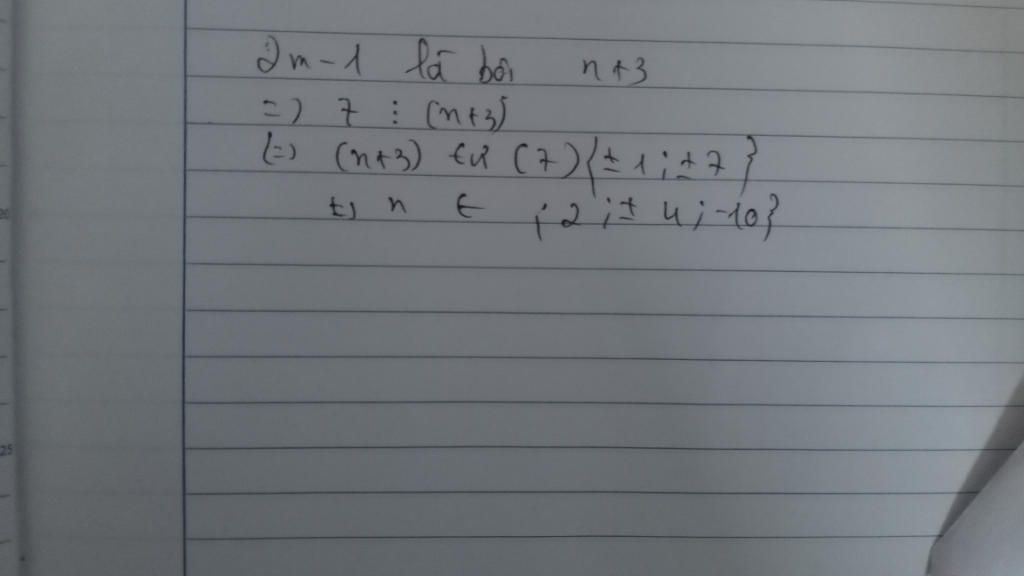 2n-1 là bội n+3
=> 7 ⋮ (n+3)
(=) (n+3) Ư (7){±1;±7}
n ∈ ; 2 ; ± 4 ; -10}
20
25